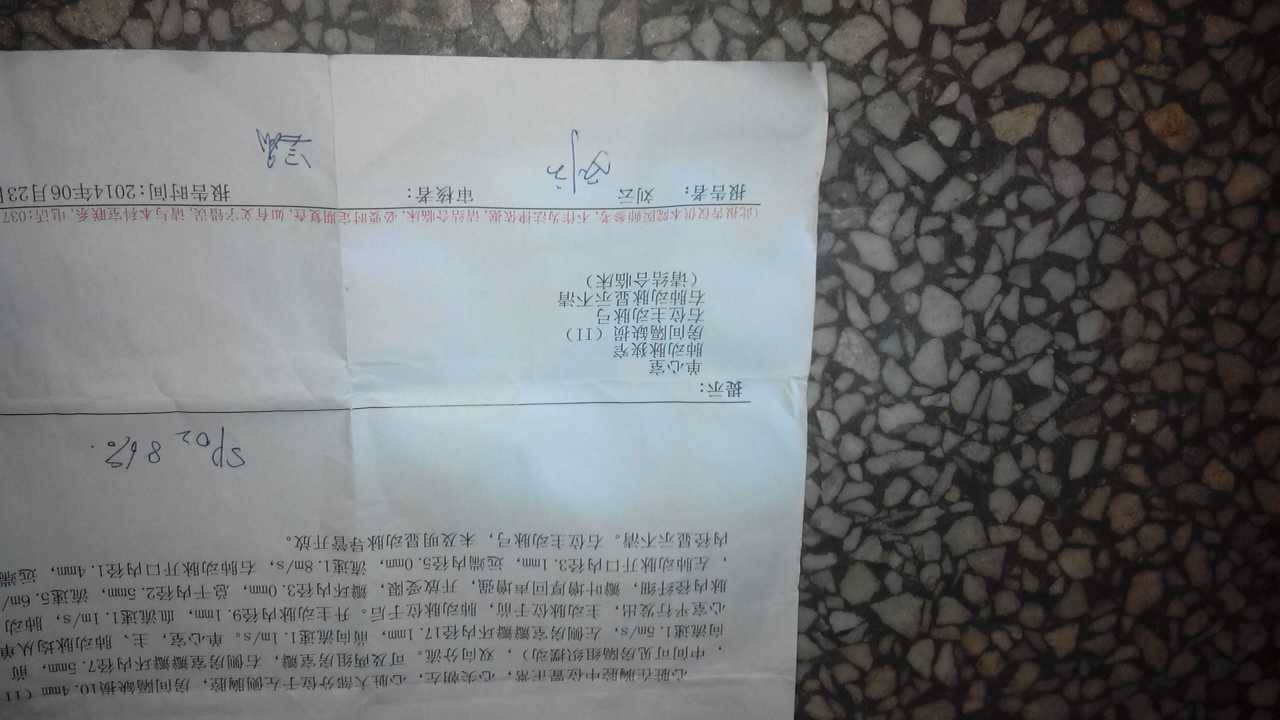 心脏在胸腔中位置正常，心尖朝左，心脏大部分位于左侧胸腔，房间隔缺损10.4mm（II
，中间可见房隔组织摆动），双向分流。可及两组房室瓣，右侧房室瓣瓣环内径7.5mm，前
向流速1.5m/s，左侧房室瓣瓣环内径17.1mm，前向流速1.1m/s。单心室，主、肺动脉均从单
心室平行发出，主动脉位于前，肺动脉位于后。升主动脉内径9.1mm，血流速1.1m/s，肺动
脉内径纤细，瓣叶增厚回声增强，开放受限，瓣环内径3.0mm，总干内径2.5mm，流速5.6m/
，左肺动脉开口内径3.1mm，远端内径5.0mm，流速1.8m/s，右肺动脉开口内径1.4mm，远端
内径显示不清。右位主动脉弓，未及明显动脉导管开放。
SpO2 86%.
提示：
单心室
肺动脉狭窄
房间隔缺损（II）
右位主动脉弓
右肺动脉显示不清
（请结合临床）
（此报告仅供本院医师参考，不作为法律依据，请结合临床，必要时定期复查，如有文字错误，请与本科室联系，电话:037
报告者： 刘云 审核者： 报告时间：2014年06月23日